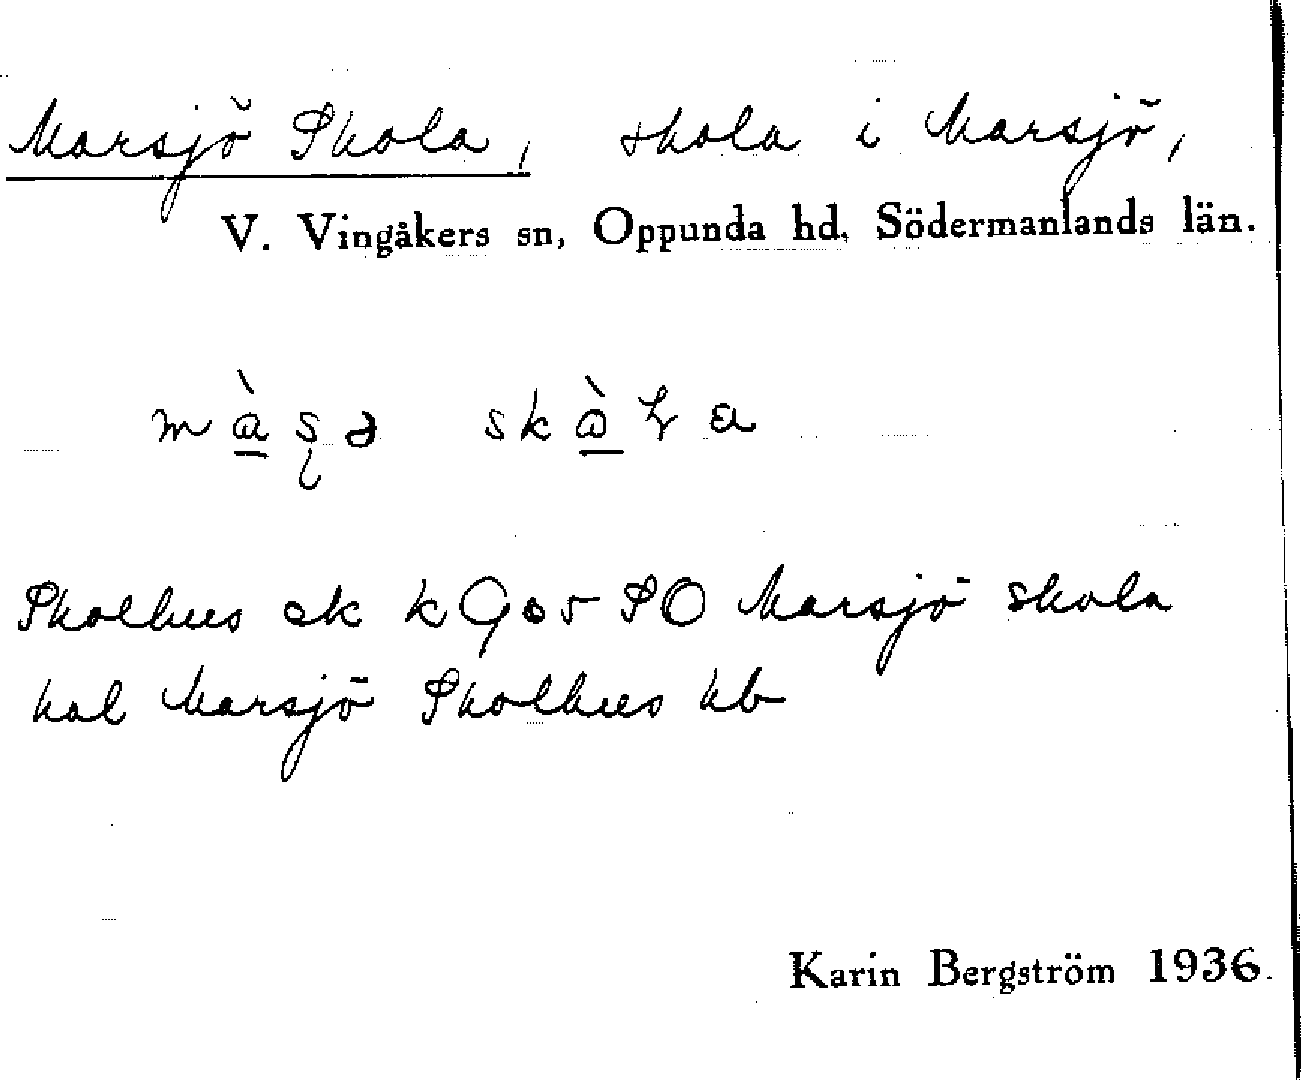 Marsjö Skola, skola i Marsjö,
V. Vingåkers sn, Oppunda hd, Södermanlands län.
Skolhus ek Marsjö skola
kal Marsjö Skolhus hb
Karin Bergström 1936.